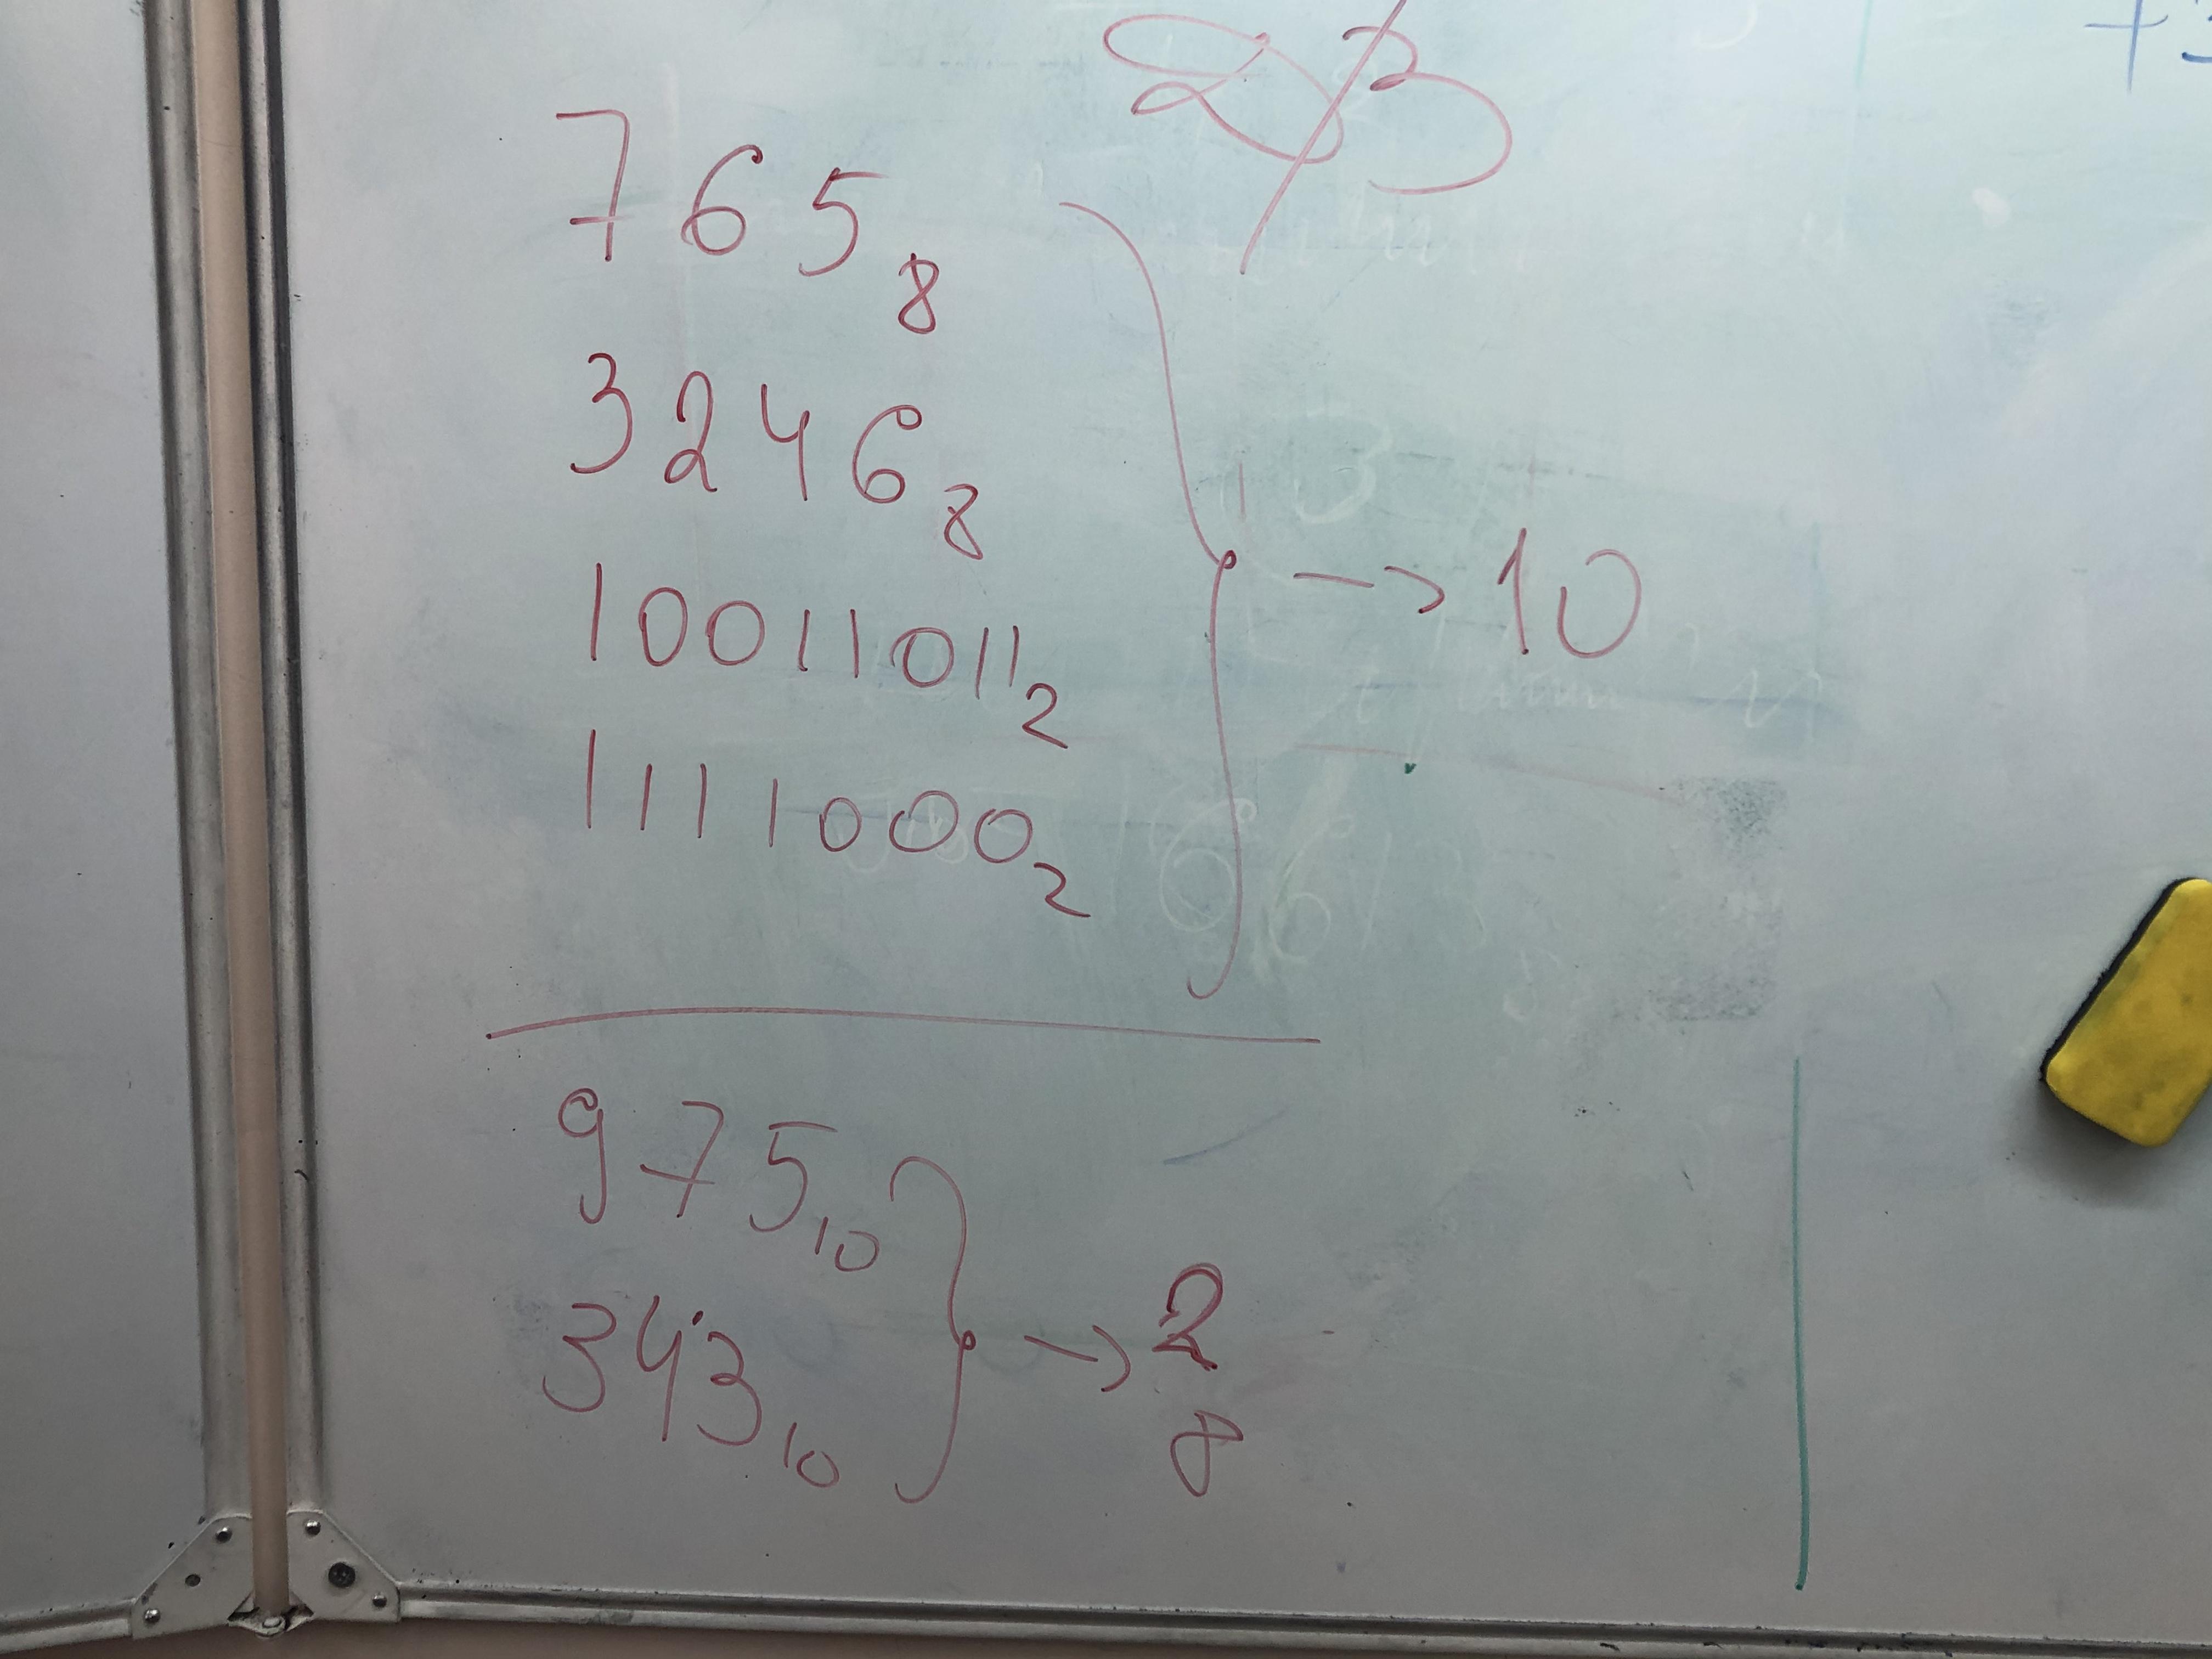 Д/З
765₈
3246₈
10011011₂
1111000₂
→ 10
975₁₀
343₁₀
→ 2
8